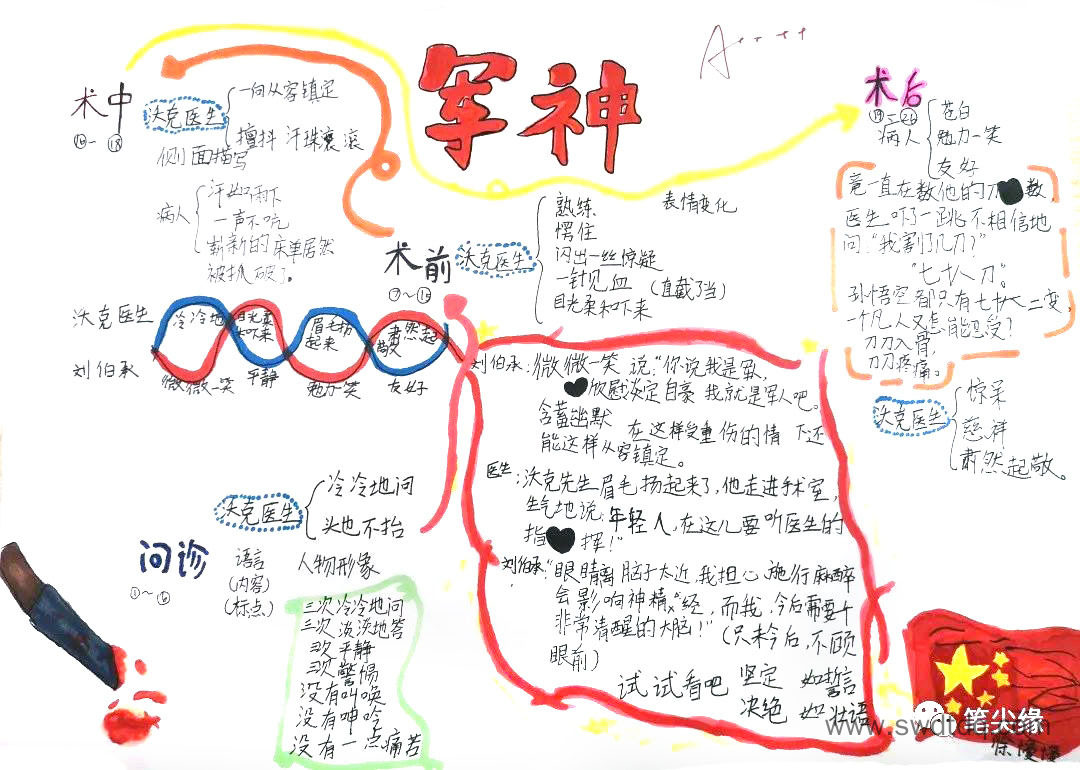 军神
A++++
术中
⑯—⑱
沃克医生
一向从容镇定
擅抖 汗珠衮滚
侧面描写
病人
汗如雨下
一声不吭
崭新的床单居然
被抓破了。
术后
病人
苍白
勉力一笑
友好
竟一直在数他的刀数,
医生吓了一跳不相信地
问:“我割了几刀?”
“七十八刀”。
孙悟空都只有七十二变,
一个凡人又怎能忍受?
刀刀入骨,
刀刀疼痛。
沃克医生
惊呆
慈祥
肃然起敬。
术前
沃克医生
熟练
愣住
闪出一丝惊疑
一针见血 (直截了当)
目光柔和下来
表情变化
沃克医生
冷冷地
目光柔和下来
眉毛扬起来
肃然起敬
刘伯承
微微一笑
平静
勉力一笑
友好
刘伯承:微微一笑 说:“你说我是军,
欣慰淡定自豪 我就是军人吧。
含蓄幽默 在这样受重伤的情 下还
能这样从容镇定。
医生:沃克先生眉毛扬起来了,他走进手术室,
生气地说:年轻人,在这儿要听医生的
指 挥!”
刘伯承:“眼睛离脑子太近,我担心施行麻醉
会影响神精经,而我,今后需要十
非常清醒的大脑!”(只未今后,不顾
眼前)
试试看吧 坚定 如誓言
决绝 如壮语
问诊
沃克医生
冷冷地问
头也不抬
语言
(内容)
(标点)
人物形象
三次冷冷地问
三次淡淡地答
三次平静
三次警惕
没有叫唤
没有呻吟
没有一点痛苦
笔尖缘